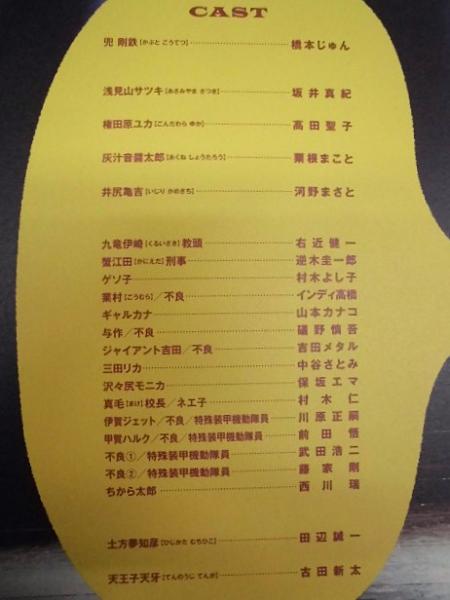 CAST
兜 剛鉄[かぶと こうてつ] 橋本じゅん
浅見山サツキ[あさみやま さつき] 坂井真紀
権田原ユカ[ごんだわら ゆか] 高田聖子
灰汁音醤太郎[あくね しょうたろう] 粟根まこと
井尻亀吉[いじり かめきち] 河野まさと
九竜伊崎[くるいざき]教頭 右近健一
蟹江田[かにえだ]刑事 逆木圭一郎
ゲソ子 村木よし子
葉村[こうむら]/不良 インディ高橋
ギャルカナ 山本カナコ
与作/不良 礒野慎吾
ジャイアント吉田/不良 吉田メタル
三田リカ 中谷さとみ
沢々尻モニカ 保坂エマ
真毛[まけ]校長/ネエ子 村木 仁
伊賀ジェット/不良/特殊装甲機動隊員 川原正嗣
甲賀ハルク/不良/特殊装甲機動隊員 前田 悟
不良①/特殊装甲機動隊員 武田浩二
不良②/特殊装甲機動隊員 藤家 剛
ちから太郎 西川 瑞
土方夢知彦[ひじかた むちひこ] 田辺誠一
天王子天牙[てんのうじ てんが] 古田新太